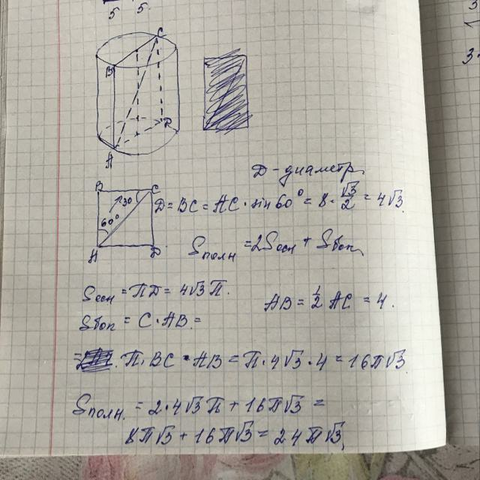 5 5
C
B
A
D
Д-диаметр
B C
30
60°
A D
Д = BC = AC · sin 60° = 8 · √3/2 = 4√3.
Sполн = 2Sосн + Sбок
Sосн = ПД = 4√3 П.
AB = 1/2 AC = 4.
Sбок = C · AB =
= П · BC · AB = П · 4√3 · 4 = 16П√3
Sполн. = 2 · 4√3 П + 16П√3 =
8П√3 + 16П√3 = 24П√3